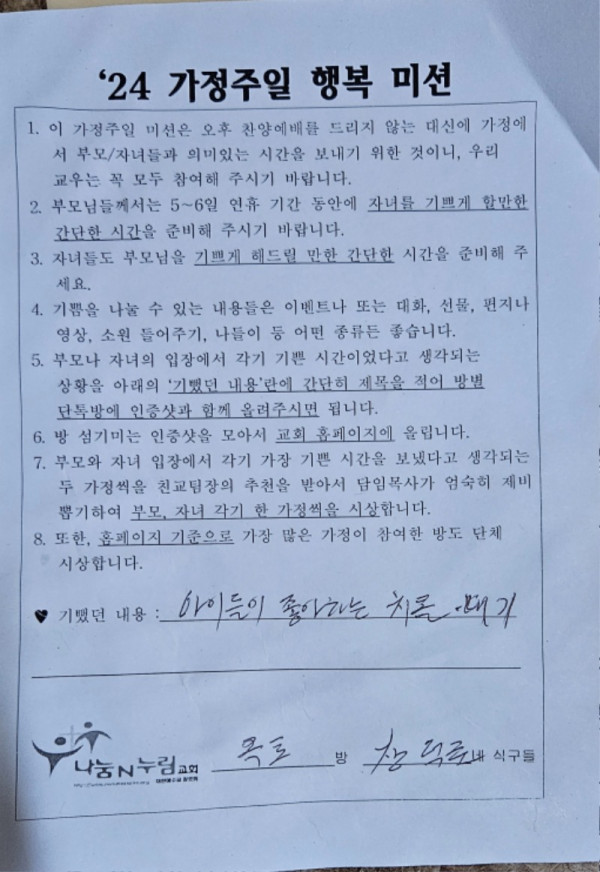 ‘24 가정주일 행복 미션
1. 이 가정주일 미션은 오후 찬양예배를 드리지 않는 대신에 가정에
서 부모/자녀들과 의미있는 시간을 보내기 위한 것이니, 우리
교우는 꼭 모두 참여해 주시기 바랍니다.
2. 부모님들께서는 5~6일 연휴 기간 동안에 자녀를 기쁘게 할만한
간단한 시간을 준비해 주시기 바랍니다.
3. 자녀들도 부모님을 기쁘게 해드릴 만한 간단한 시간을 준비해 주
세요.
4. 기쁨을 나눌 수 있는 내용들은 이벤트나 또는 대화, 선물, 편지나
영상, 소원 들어주기, 나들이 등 어떤 종류든 좋습니다.
5. 부모나 자녀의 입장에서 각기 기쁜 시간이었다고 생각되는
상황을 아래의 ‘기뻤던 내용’란에 간단히 제목을 적어 방별
단톡방에 인증샷과 함께 올려주시면 됩니다.
6. 방 섬기미는 인증샷을 모아서 교회 홈페이지에 올립니다.
7. 부모와 자녀 입장에서 각기 가장 기쁜 시간을 보냈다고 생각되는
두 가정씩을 친교팀장의 추천을 받아서 담임목사가 엄숙히 제비
뽑기하여 부모, 자녀 각기 한 가정씩을 시상합니다.
8. 또한, 홈페이지 기준으로 가장 많은 가정이 참여한 방도 단체
시상합니다.
♥ 기뻤던 내용 : 아이들이 좋아하는 치롤
나눔N누림교회 옥토 방 네 식구들